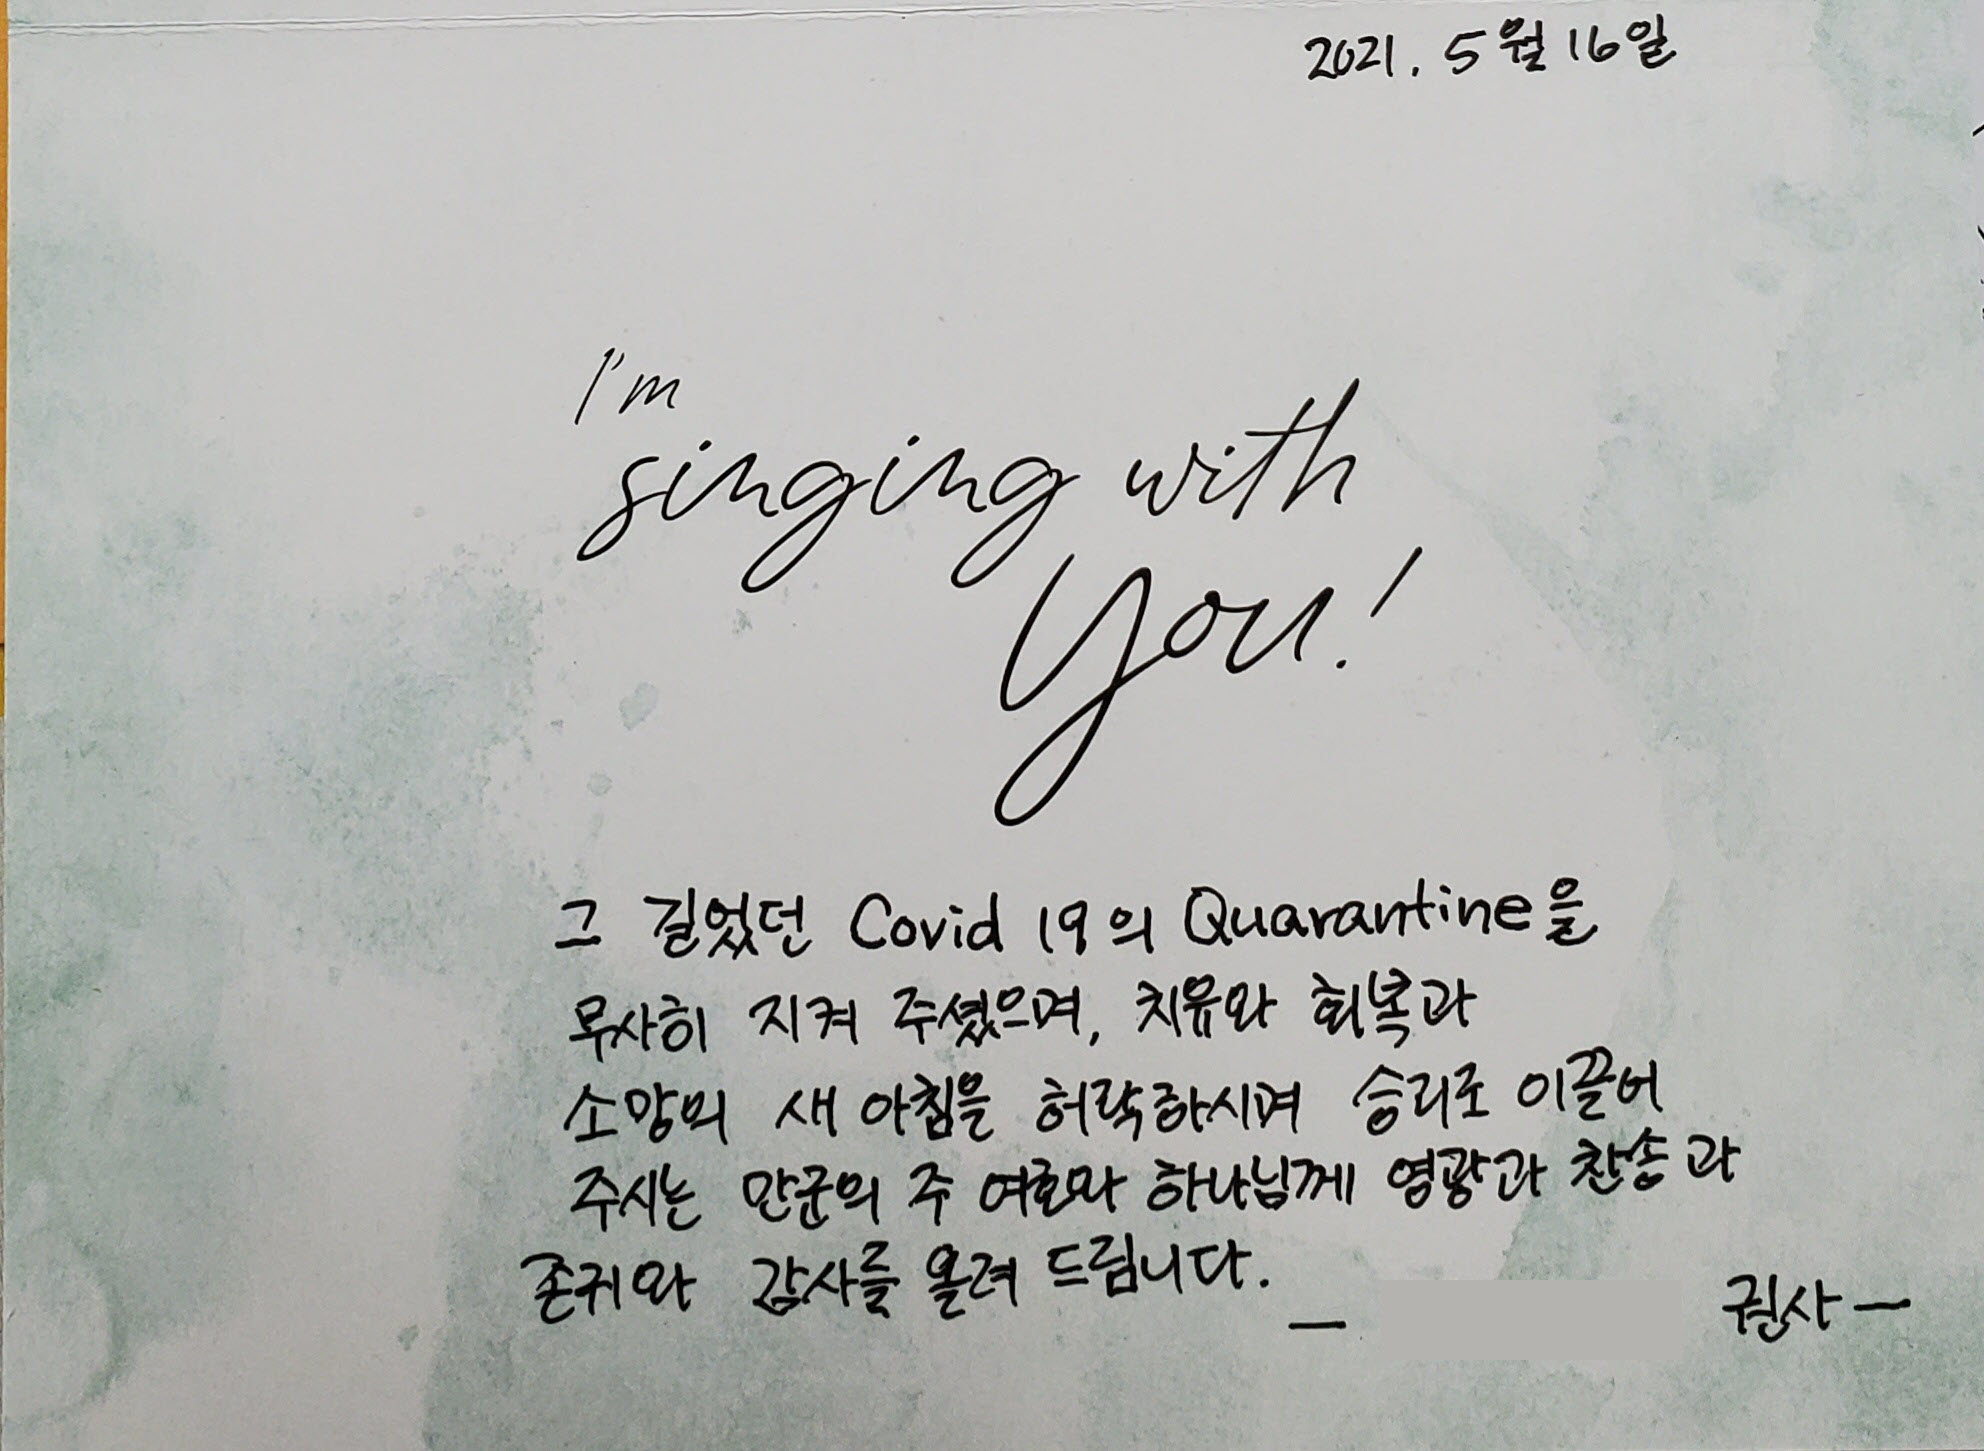 2021. 5월 16일
I'm
singing with
you!
그 길었던 Covid 19의 Quarantine을
무사히 지켜 주셨으며, 치유와 회복과
소망의 새 아침을 허락하시며 승리로 이끌어
주시는 만군의 주 여호와 하나님께 영광과 찬송과
존귀와 감사를 올려 드립니다.
— 권사 —